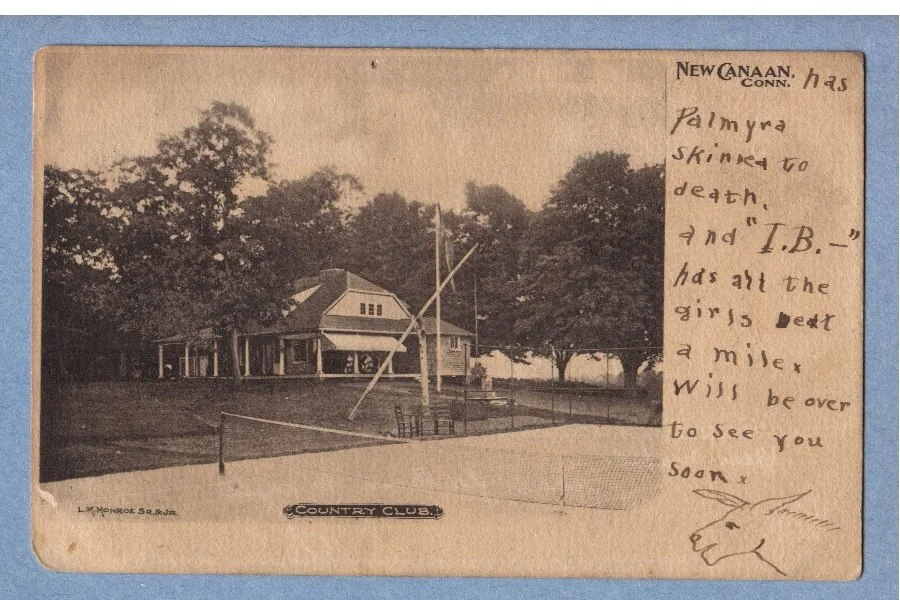 NEW CANAAN, CONN. has
Palmyra
skinned to
death.
and "I.B.—"
has all the
girls beat
a mile.
Will be over
to see you
soon.
L.M. MONROE SR. & JR.
COUNTRY CLUB.